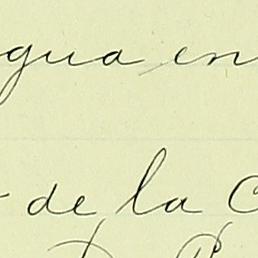 gua en
de la C